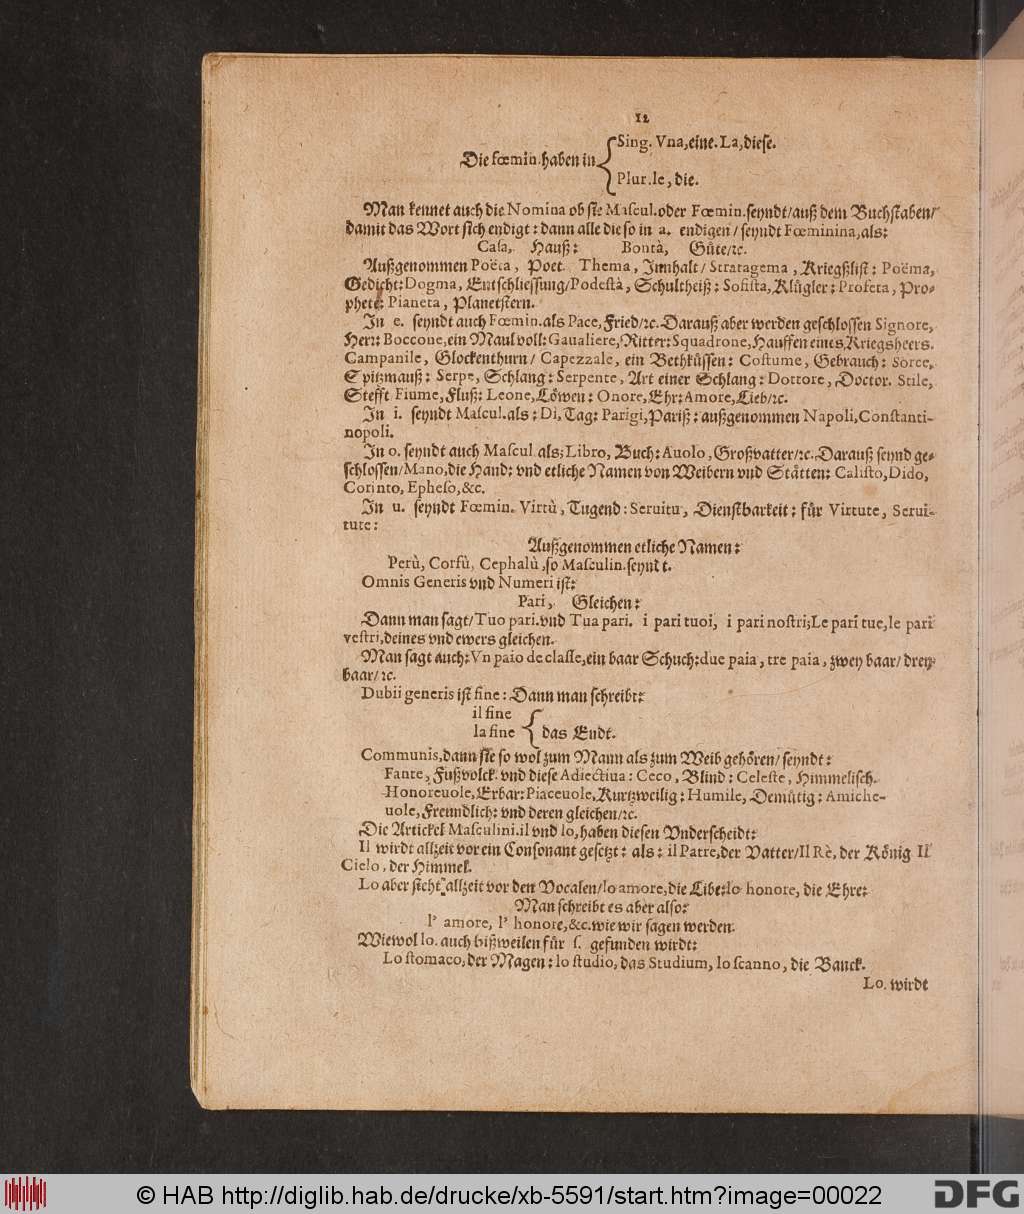 12
Sing. Vna, eine. La, diese.
Die fœmin. haben in
Plur. le, die.
Man kennet auch die Nomina ob sie Mascul. oder Fœmin. seyndt/ auß dem Buchstaben/
damit das Wort sich endigt: dann alle die so in a. endigen/ seyndt Fœminina, als:
Casa, Hauß: Bontà, Gůte/ꝛc.
Außgenommen Poëta, Poet. Thema, Innhalt/ Stratagema, Kriegßlist: Poëma,
Gedicht: Dogma, Entschliessung/ Podestà, Schultheiß: Sofista, Klůgler: Profeta, Pro-
phete: Pianeta, Planetstern.
In e. seyndt auch Fœmin. als Pace, Fried/ꝛc. Darauß aber werden geschlossen Signore,
Herr: Boccone, ein Maul voll: Gaualiere, Ritter: Squadrone, Hauffen eines Kriegsheers.
Campanile, Glockenthurn/ Capezzale, ein Bethkůssen: Costume, Gebrauch: Sorce,
Spitzmauß: Serpe, Schlang: Serpente, Art einer Schlang: Dottore, Doctor. Stile,
Stefft Fiume, Fluß: Leone, Löwen: Onore, Ehr: Amore, Lieb/ꝛc.
In i. seyndt Mascul. als: Di, Tag: Parigi, Pariß: außgenommen Napoli, Constanti-
nopoli.
In o. seyndt auch Mascul als; Libro, Buch: Auolo, Großvatter/ꝛc. Darauß seynd ge-
schlossen/ Mano, die Hand: vnd etliche Namen von Weibern vnd Stätten: Calisto, Dido,
Corinto, Epheso, &c.
In u. seyndt Fœmin. Virtù, Tugend: Seruitu, Dienstbarkeit: fůr Virtute, Serui-
tute:
Außgenommen etliche Namen:
Perù, Corfù, Cephalù, so Masculin. seyndt.
Omnis Generis vnd Numeri ist:
Pari, Gleichen:
Dann man sagt/ Tuo pari. vnd Tua pari. i pari tuoi, i pari nostri; Le pari tue, le pari
vestri, deines vnd ewers gleichen.
Man sagt auch: Vn paio de classe, ein baar Schuch: due paia, tre paia, zwey baar/ drey
baar/ꝛc.
Dubii generis ist fine: Dann man schreibt:
il fine
la fine das Endt.
Communis, dann sie so wol zum Mann als zum Weib gehören/ seyndt:
Fante, Fußvolck. vnd diese Adiectiua: Ceco, Blind: Celeste, Himmelisch.
Honoreuole, Erbar: Piaceuole, Kurtzweilig: Humile, Demůtig: Amiche-
uole, Freundlich: vnd deren gleichen/ꝛc.
Die Artickel Masculini. il vnd lo, haben diesen Vnderscheidt:
Il wirdt allzeit vor ein Consonant gesetzt: als: il Patre, der Vatter/ Il Rè, der König Il
Cielo, der Himmel.
Lo aber steht allzeit vor den Vocalen/ lo amore, die Libe: lo honore, die Ehre:
Man schreibt es aber also:
l' amore, l' honore, &c. wie wir sagen werden.
Wiewol lo. auch bißweilen fůr s. gefunden wirdt:
Lo stomaco, der Magen: lo studio, das Studium, lo scanno, die Banck.
Lo. wirdt
© HAB http://diglib.hab.de/drucke/xb-5591/start.htm?image=00022
DFG